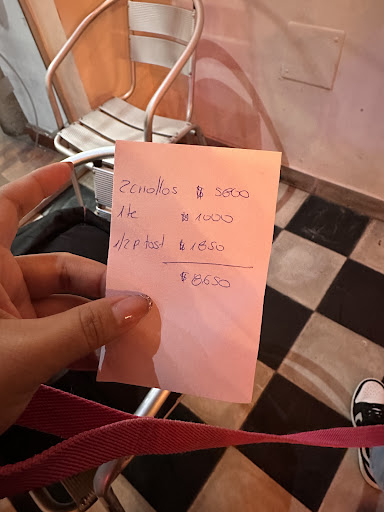 2 Criollos $ 5800
1 te $ 1000
1/2 P. tost $ 1850
$ 8650